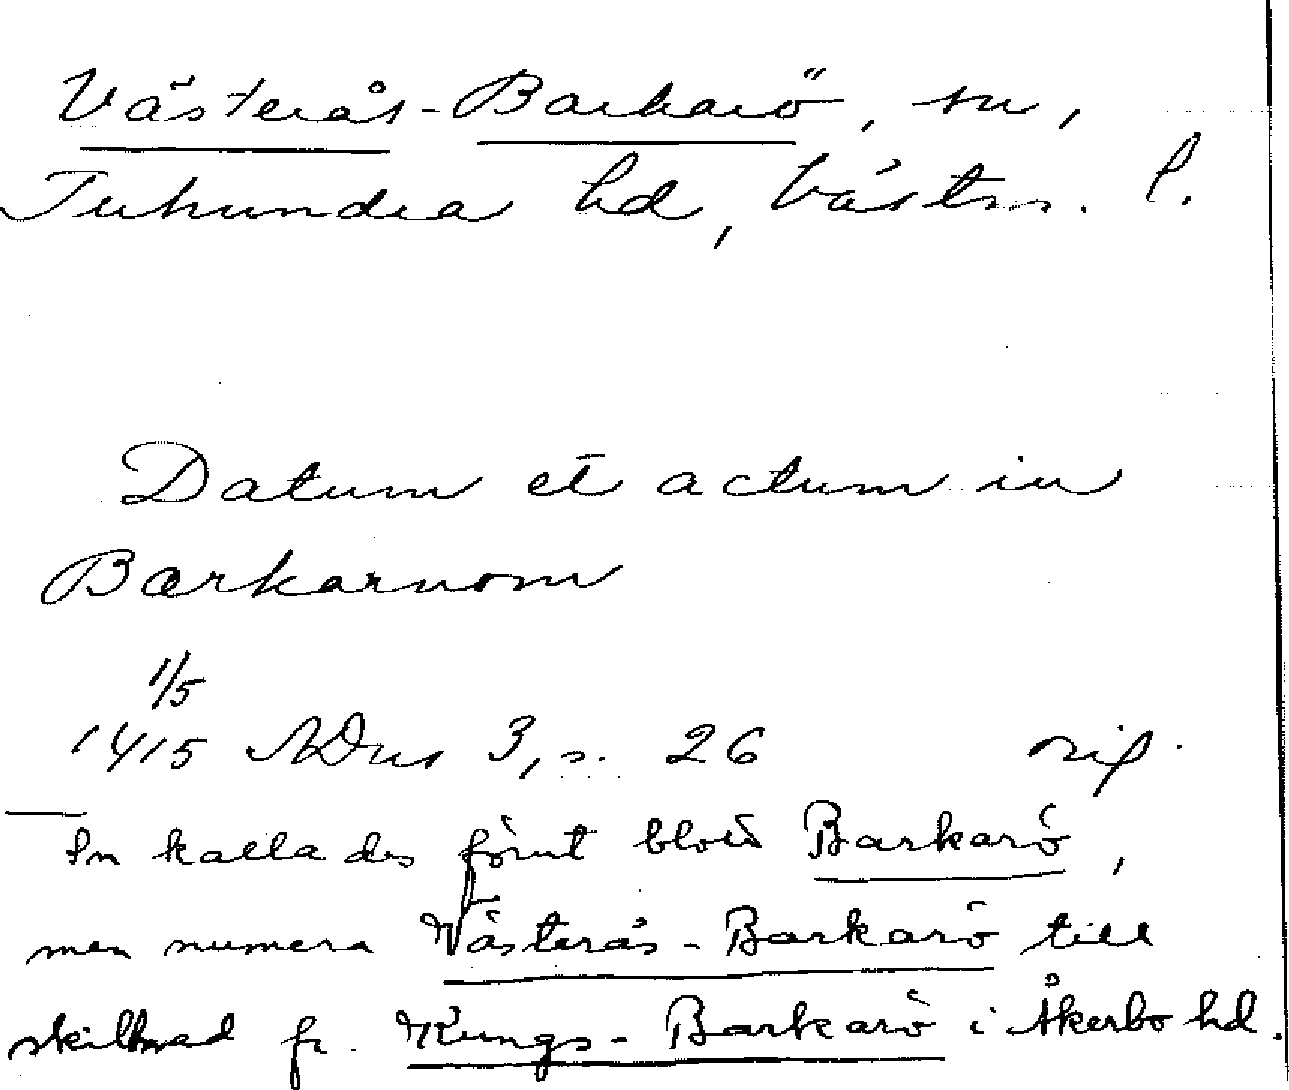 Västerås-Barkarö, sn,
Tuhundra hd, Västm. l.
Datum et actum in
Barkarnom
1/5
1415 SDns 3, s. 26 sig.
Sn kallades förut blott Barkarö,
men numera Västerås-Barkarö till
skillnad fr. Kungs-Barkarö i Åkerbo hd.